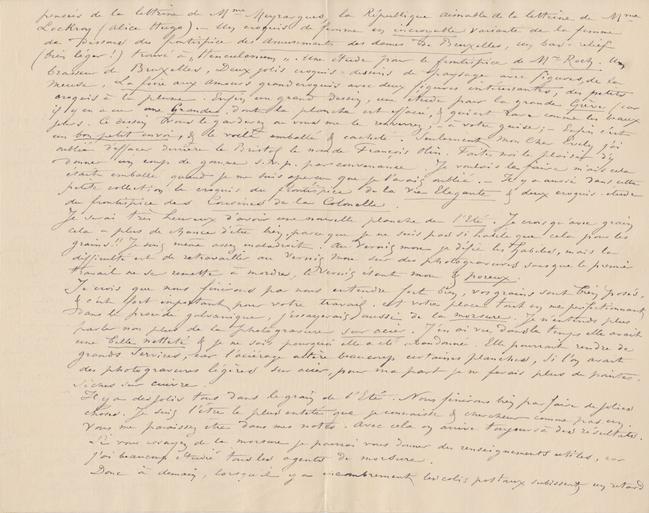 pensées de la lettrine de Mme Meyrargues, la République aimable de la lettrine de Mme
Lockroy (Alice Hugo) _ Un croquis de femme en incroyable variante de la femme
de du frontispice des Amusements des dames de Bruxelles, un bas-relief
(bien léger!) trouvé à "Herculanum". Une étude pour le frontispice de Mme Un
brasseur de Bruxelles, Deux jolis croquis-dessins de paysage avec figures, de la
Meuse, La foire aux Amours grand croquis avec deux figures intéressantes; des petits
croquis à la plume. Enfin, un grand dessin, une étude pour la grande Grève, car
il y en a eu une Grande, dont la planche est effacée, & qui est rare comme les beaux
jours. le dessin Vous le garderez ou vous me le renverrez à votre guise; _ Enfin c'est
un bon petit envoi, & le voilà emballé & cacheté. Seulement, Mon Cher j'ai
oublié d'effacer derrière le Bristol le nom de François Faites moi le plaisir d'y
donner un coup de gomme s.v.p. par convenance. Je voulais le faire, mais cela
était emballé quand je me suis aperçu que je l'avais oublié. Il y a aussi dans cette
petite collection le croquis du frontispice de la Vie Elégante & deux croquis-étude
du frontispice des Cousines de la Colonelle.
Je serai très heureux d'avoir une nouvelle planche de l'Eté. Je crois qu'avec grain
cela a plus de chances d'être bien, parce que je ne suis pas si habile que cela pour les
grains!! Je suis même assez maladroit. Au Vernis mou je défie les habiles, mais la
difficulté est de retravailler au Vernis mou sur des photogravures lorsque le premier
travail ne se remette à mordre, le Vernis étant mou & poreux.
Je crois que nous finirons par nous entendre fort bien, vos grains sont bien posés,
& c'est fort important pour votre travail. à votre place tout en me perfectionnant
dans le procédé galvanique, j'essayerais aussi de la morsure. Je n'entends plus
parler non plus de la photogravure sur acier. J'en ai vu dans le temps elle avait
une belle netteté & je ne sais pourquoi elle a été abandonnée. Elle pourrait rendre de
grands services, car l'aciérage altère beaucoup certaines planches, si l'on avait
des photogravures légères sur acier, pour ma part je ne ferais plus de pointes
sèches sur cuivre.
Il y a des jolis tons dans le grain de l'Eté. Nous finirons bien par faire de jolies
choses. Je suis l'être le plus entêté que je connaisse & chercheur comme pas un.
Vous me paraissez être dans mes notes. Avec cela on arrive toujours à des résultats.
Si vous essayez de la morsure je pourrai vous donner des renseignements utiles, car
j'ai beaucoup étudié tous les agents de morsure.
Donc à demain, lorsqu'il y a encombrement, les colis postaux subissent un retard